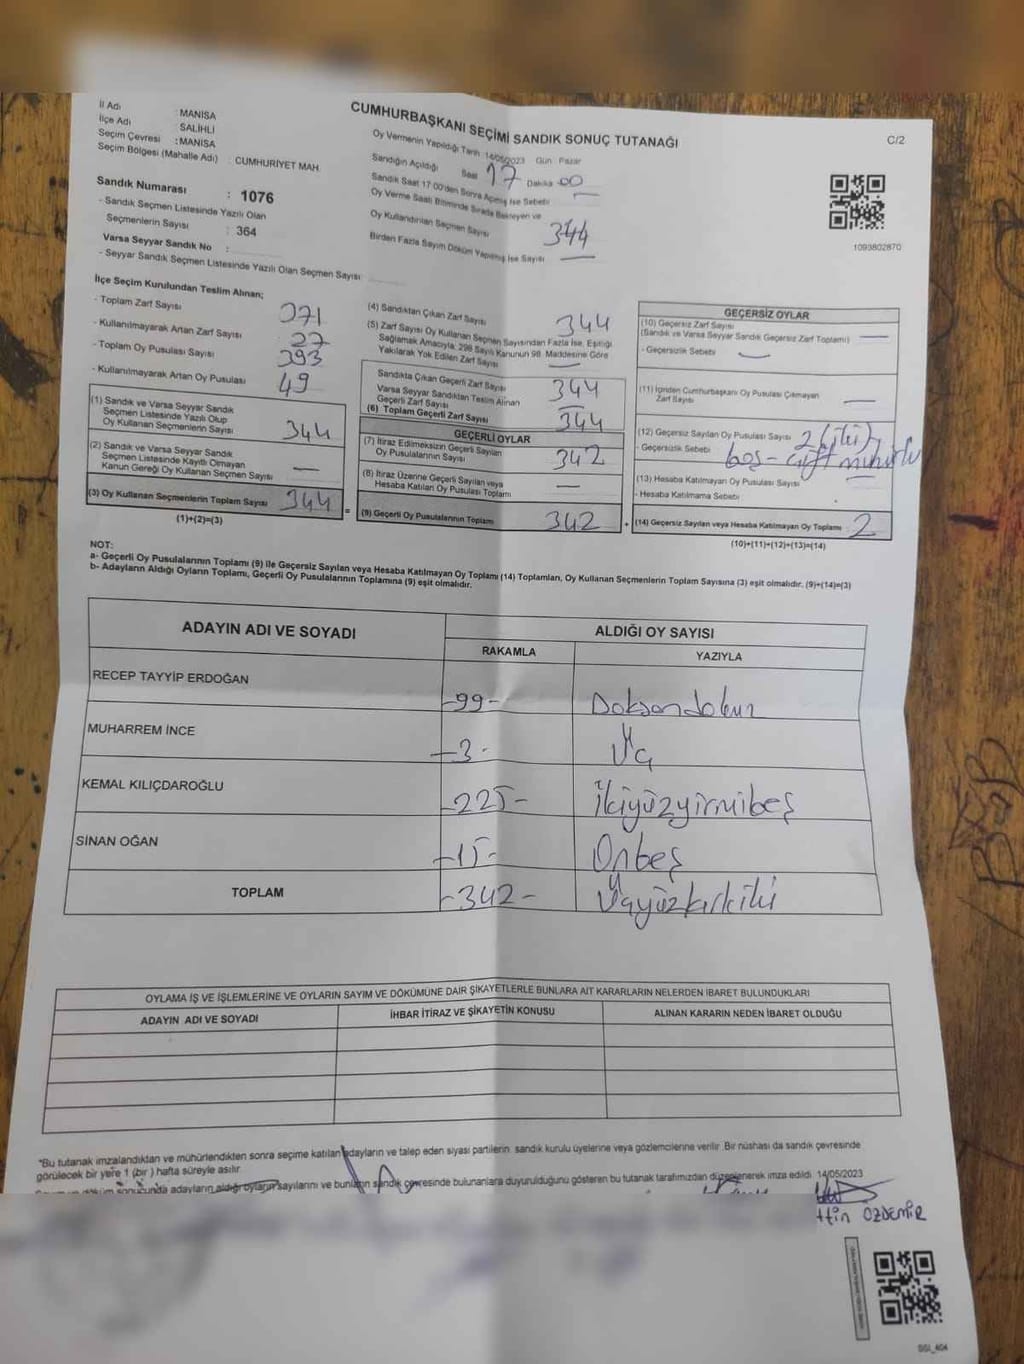 İl Adı : MANİSA
İlçe Adı : SALİHLİ
Seçim Çevresi : MANİSA
Seçim Bölgesi (Mahalle Adı) : CUMHURİYET MAH.
Sandık Numarası : 1076
- Sandık Seçmen Listesinde Yazılı Olan
Seçmenlerin Sayısı : 364
Varsa Seyyar Sandık No :
- Seyyar Sandık Seçmen Listesinde Yazılı Olan Seçmen Sayısı
CUMHURBAŞKANI SEÇİMİ SANDIK SONUÇ TUTANAĞI
C/2
Oy Vermenin Yapıldığı Tarih 14/05/2023 Gün Pazar
Sandığın Açıldığı Saat 17 Dakika 00
Sandık Saat 17:00'den Sonra Açılmış İse Sebebi
Oy Verme Saati Bitiminde Sırada Bekleyen ve
Oy Kullandırılan Seçmen Sayısı 344
Birden Fazla Sayım Döküm Yapılmış İse Sayısı —
1093802870
İlçe Seçim Kurulundan Teslim Alınan;
- Toplam Zarf Sayısı 371
- Kullanılmayarak Artan Zarf Sayısı 27
- Toplam Oy Pusulası Sayısı 393
- Kullanılmayarak Artan Oy Pusulası 49
(1) Sandık ve Varsa Seyyar Sandık
Seçmen Listesinde Yazılı Olup
Oy Kullanan Seçmenlerin Sayısı 344
(2) Sandık ve Varsa Seyyar Sandık
Seçmen Listesinde Kayıtlı Olmayan
Kanun Gereği Oy Kullanan Seçmen Sayısı —
(3) Oy Kullanan Seçmenlerin Toplam Sayısı 344
(1)+(2)=(3)
=
(4) Sandıktan Çıkan Zarf Sayısı 344
(5) Zarf Sayısı Oy Kullanan Seçmen Sayısından Fazla İse, Eşitliği
Sağlamak Amacıyla; 298 Sayılı Kanunun 98. Maddesine Göre
Yakılarak Yok Edilen Zarf Sayısı —
Sandıkta Çıkan Geçerli Zarf Sayısı 344
Varsa Seyyar Sandıktan Teslim Alınan
Geçerli Zarf Sayısı —
(6) Toplam Geçerli Zarf Sayısı 344
GEÇERLİ OYLAR
(7) İtiraz Edilmeksizin Geçerli Sayılan
Oy Pusulalarının Sayısı 342
(8) İtiraz Üzerine Geçerli Sayılan veya
Hesaba Katılan Oy Pusulası Toplamı —
(9) Geçerli Oy Pusulalarının Toplamı 342
+
GEÇERSİZ OYLAR
(10) Geçersiz Zarf Sayısı
(Sandık ve Varsa Seyyar Sandık Geçersiz Zarf Toplamı) —
- Geçersizlik Sebebi —
(11) İçinden Cumhurbaşkanı Oy Pusulası Çıkmayan
Zarf Sayısı —
(12) Geçersiz Sayılan Oy Pusulası Sayısı 2 (iki)
- Geçersizlik Sebebi boş - çift mühürlü
(13) Hesaba Katılmayan Oy Pusulası Sayısı —
- Hesaba Katılmama Sebebi
(14) Geçersiz Sayılan veya Hesaba Katılmayan Oy Toplamı 2
(10)+(11)+(12)+(13)=(14)
NOT:
a- Geçerli Oy Pusulalarının Toplamı (9) ile Geçersiz Sayılan veya Hesaba Katılmayan Oy Toplamı (14) Toplamları, Oy Kullanan Seçmenlerin Toplam Sayısına (3) eşit olmalıdır. (9)+(14)=(3)
b- Adayların Aldığı Oyların Toplamı, Geçerli Oy Pusulalarının Toplamına (9) eşit olmalıdır.
ADAYIN ADI VE SOYADI
ALDIĞI OY SAYISI
RAKAMLA YAZIYLA
RECEP TAYYİP ERDOĞAN -99- Doksandokuz
MUHARREM İNCE -3- Üç
KEMAL KILIÇDAROĞLU -225- İkiyüzyirmibeş
SİNAN OĞAN -15- Onbeş
TOPLAM -342- Üçyüzkırkiki
OYLAMA İŞ VE İŞLEMLERİNE VE OYLARIN SAYIM VE DÖKÜMÜNE DAİR ŞİKAYETLERLE BUNLARA AİT KARARLARIN NELERDEN İBARET BULUNDUKLARI
ADAYIN ADI VE SOYADI İHBAR İTİRAZ VE ŞİKAYETİN KONUSU ALINAN KARARIN NEDEN İBARET OLDUĞU
*Bu tutanak imzalandıktan ve mühürlendikten sonra seçime katılan adayların ve talep eden siyasi partilerin sandık kurulu üyelerine veya gözlemcilerine verilir. Bir nüshası da sandık çevresinde
görülecek bir yere 1 (bir) hafta süreyle asılır.
döküm sonucunda adayların aldığı oyların sayılarını ve bunların sandık çevresinde bulunanlara duyurulduğunu gösteren bu tutanak tarafımızdan düzenlenerek imza edildi. 14/05/2023
ttin ÖZDEMİR